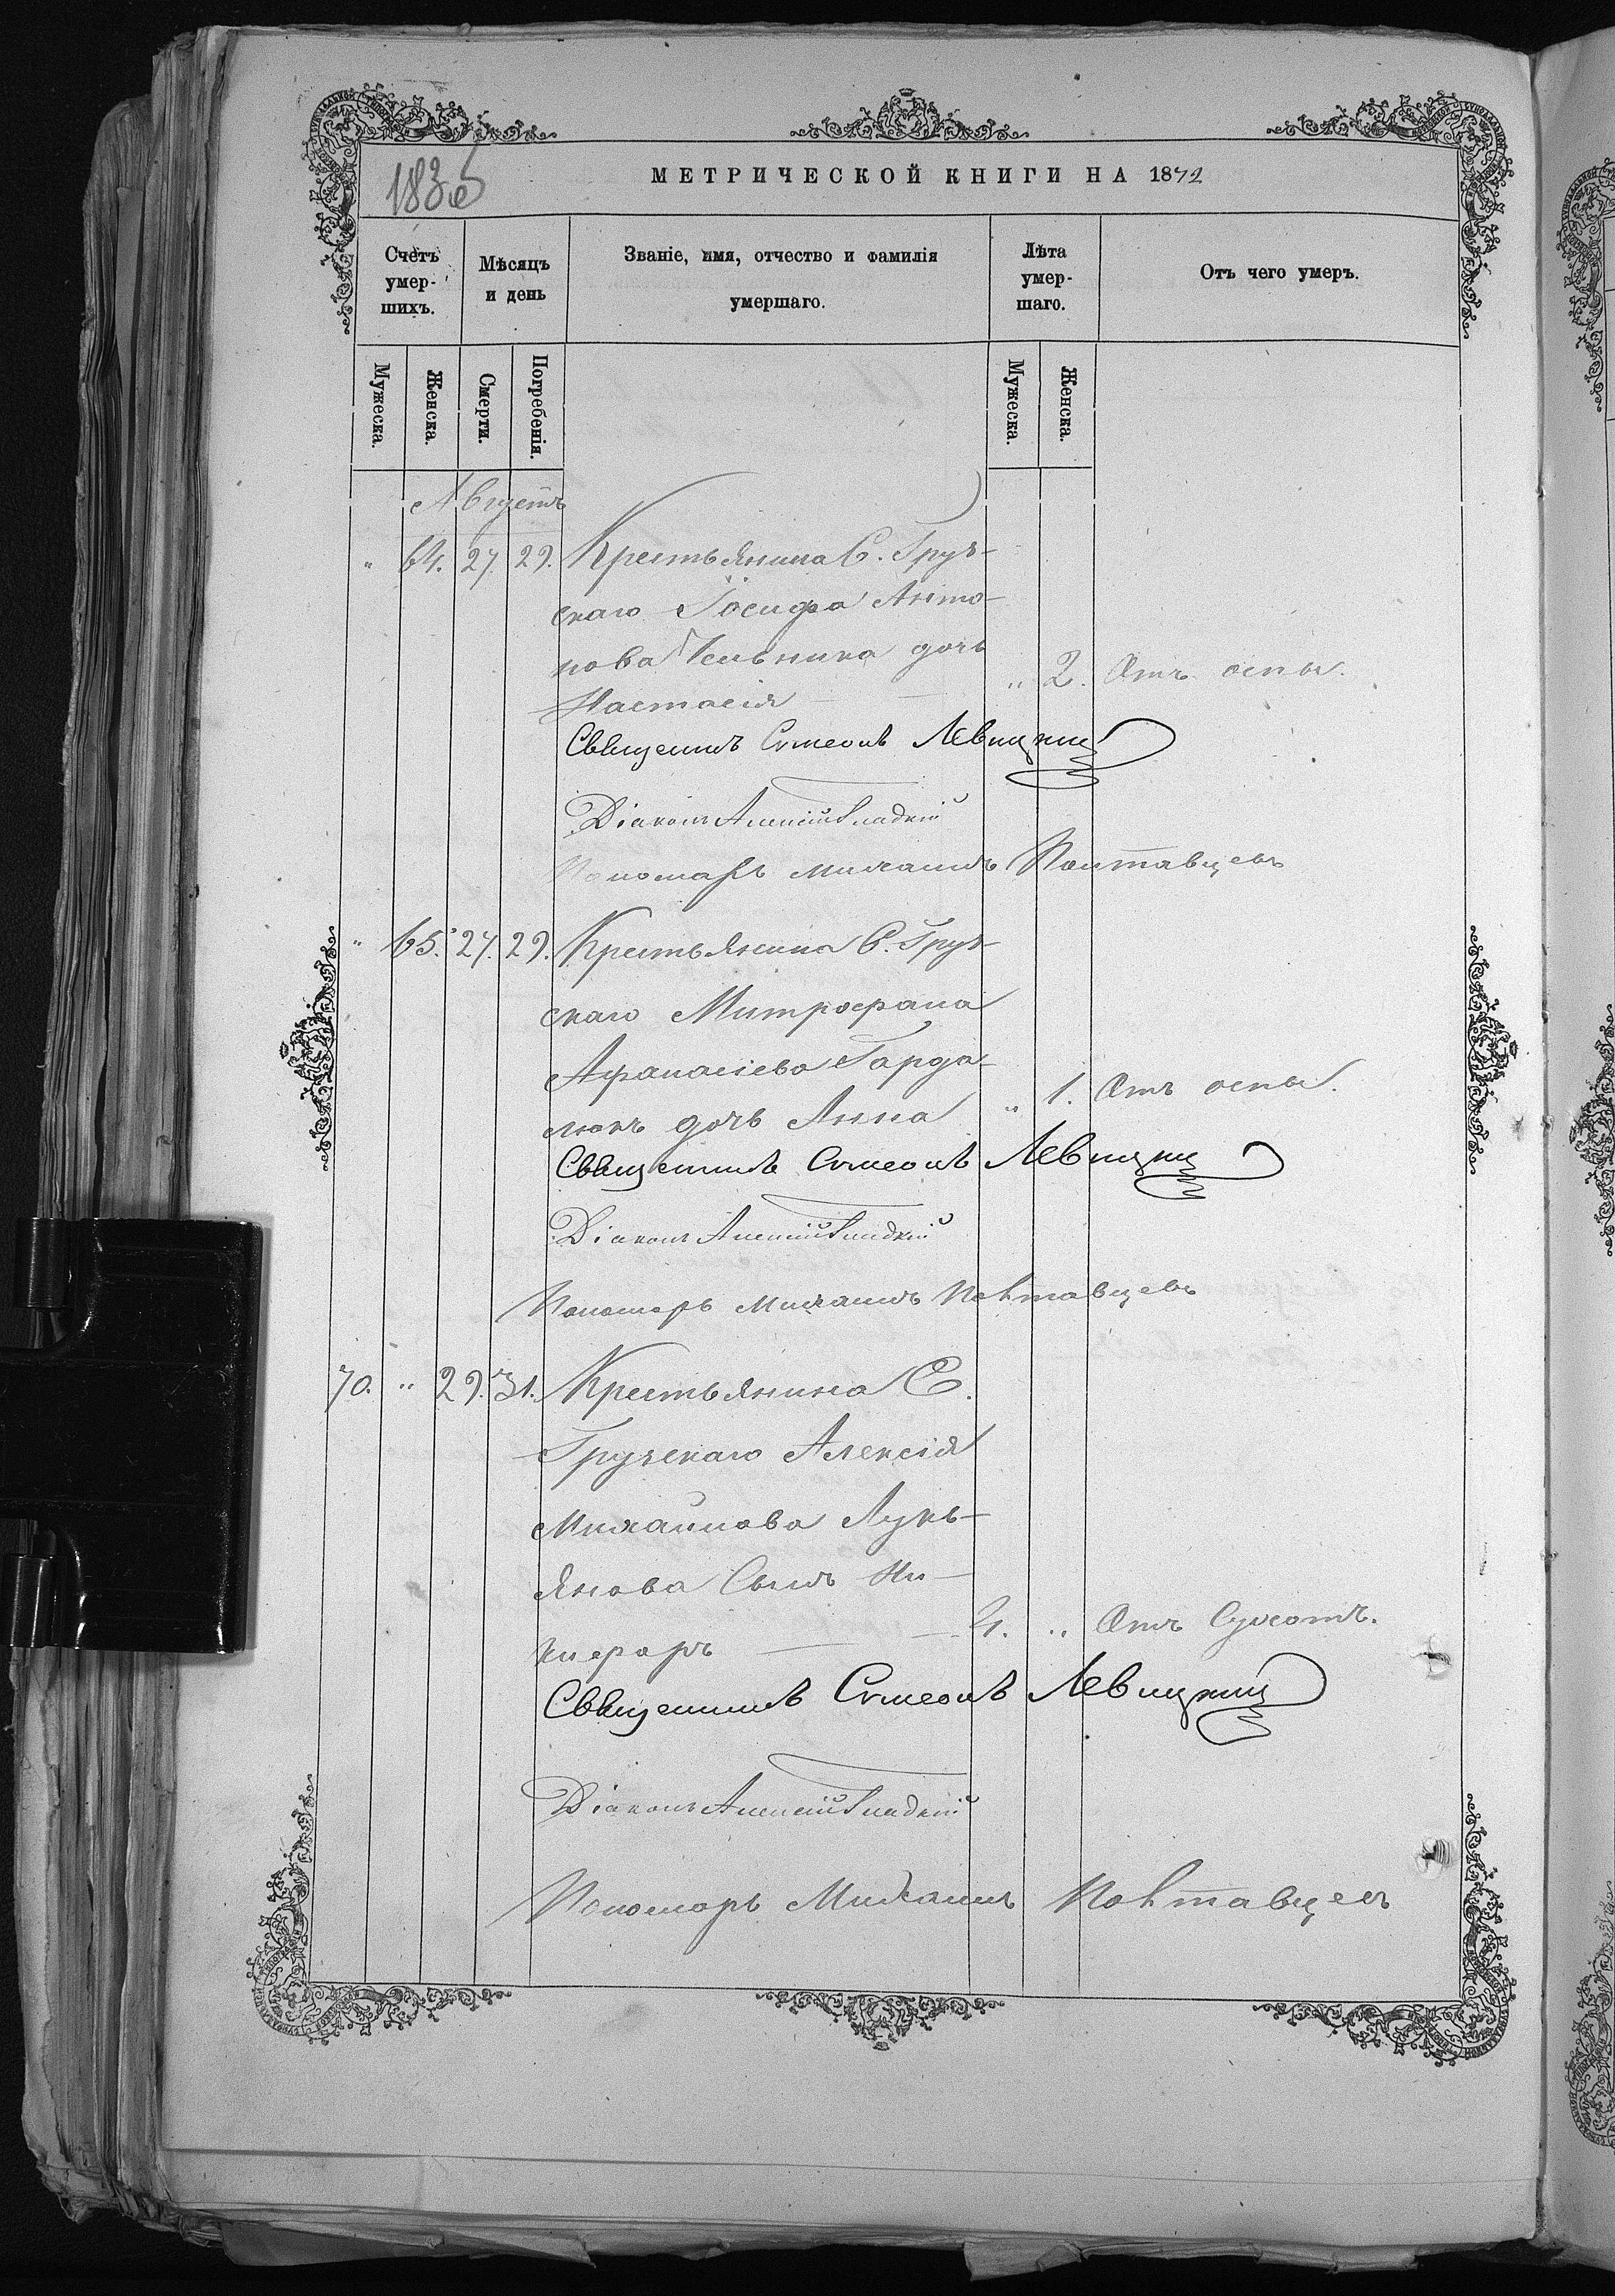 МЕТРИЧЕСКОЙ КНИГИ НА 1872
Счетъ умер-шихъ.
Мѣсяцъ и день
Званіе, имя, отчество и фамилія умершаго.
Лѣта умер-шаго.
Отъ чего умеръ.
Мужеска.
Женска.
Смерти.
Погребенія.
Мужеска.
Женска.
Августъ
" 64. 27. 29. Крестьянина С. Груз-
скаго Іосифа Анто-
нова дочь
Настасія " 2. Отъ оспы.
Священникъ Симеонъ Левицкій
Діаконъ Алексій Гладкій
Пономарь Михаилъ Полтавцевъ
" 65. 27. 29. Крестьянина С. Груз-
скаго Митрофана
Афанасіева Гарда-
люкъ дочь Анна " 1. Отъ оспы.
Священникъ Симеонъ Левицкій
Діаконъ Алексій Гладкій
Пономарь Михаилъ Полтавцевъ
70. " 29. 31. Крестьянина С.
Грузскаго Алексія
Михаилова Лукь-
янова сынъ Ни-
кифоръ 4. " Отъ сухотъ.
Священникъ Симеонъ Левицкій
Діаконъ Алексій Гладкій
Пономарь Михаилъ Полтавцевъ